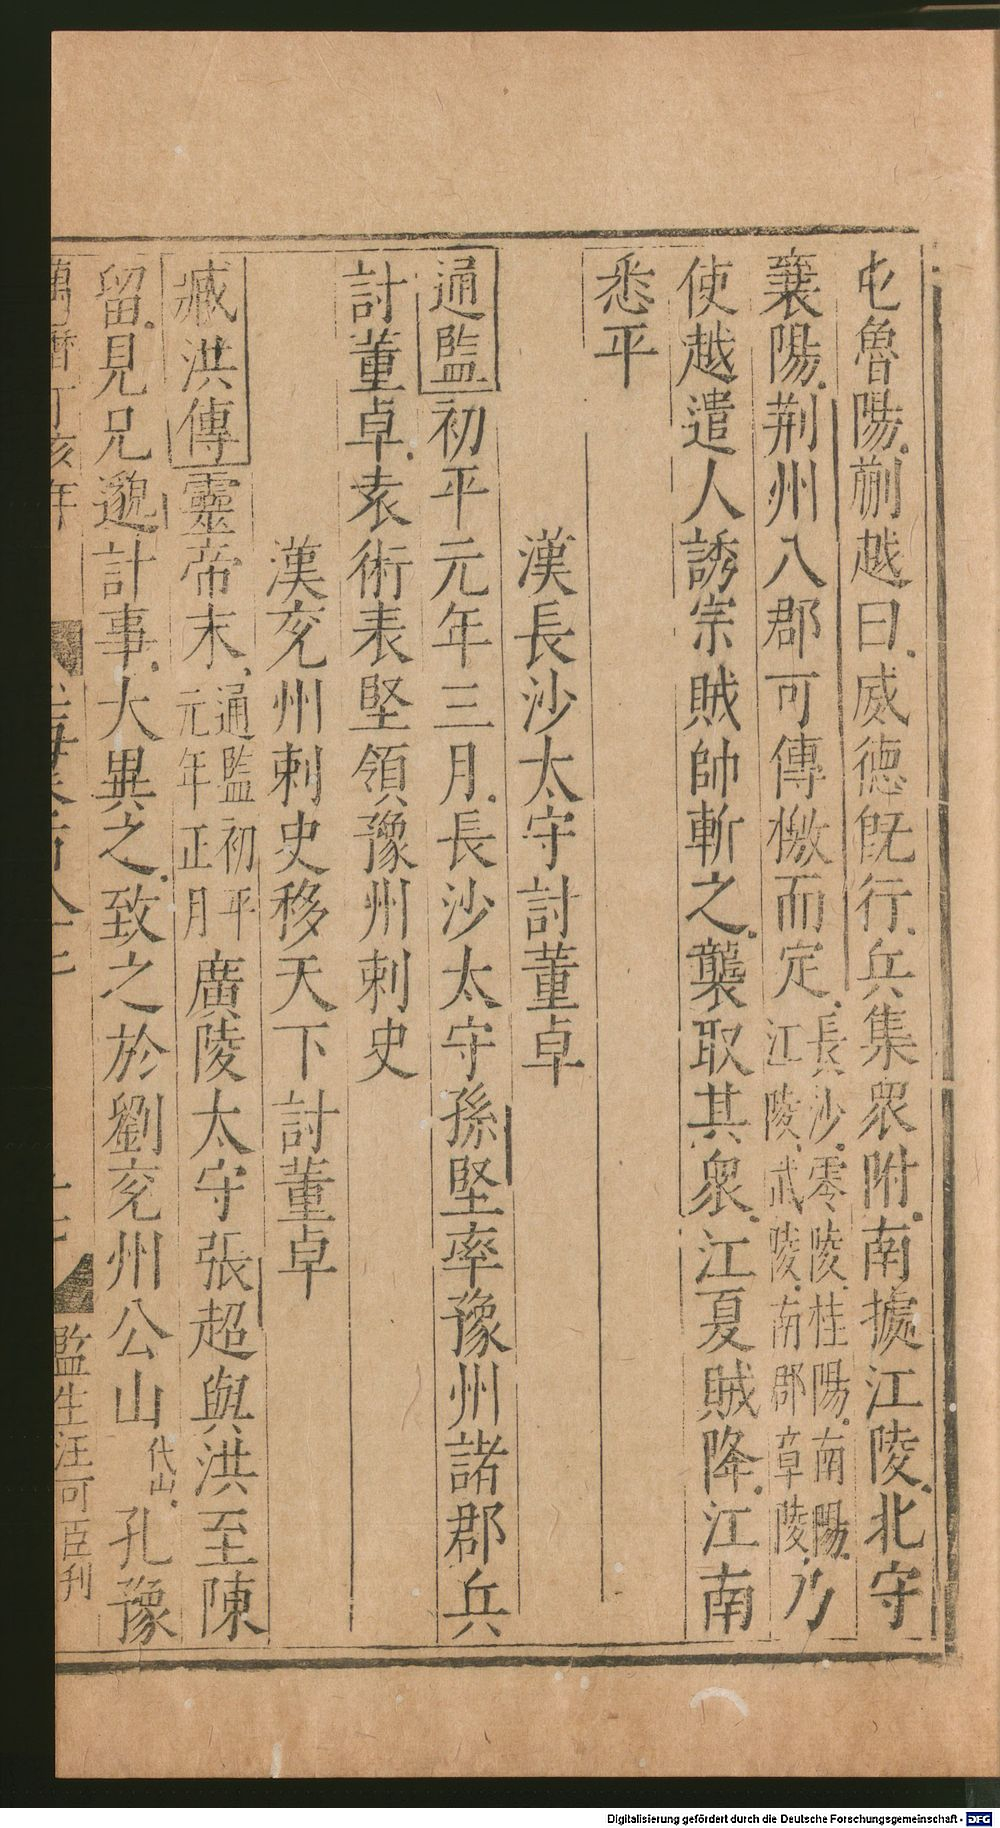 屯魯陽蒯越曰威德旣行兵集衆附南據江陵北守
襄陽荆州八郡可傳檄而定長沙零陵桂陽南陽江陵武陵南郡章陵乃
使越遣人誘宗賊帥斬之襲取其衆江夏賊降江南
悉平
漢長沙太守討董卓
通監初平元年三月長沙太守孫堅率豫州諸郡兵
討董卓袁術表堅領豫州刺史
漢兖州刺史移天下討董卓
臧洪傳靈帝末通監初平元年正月廣陵太守張超與洪至陳
留見兄邈計事大異之致之於劉兖州公山代山孔豫
萬曆丁亥年
監生汪可臣刋
Digitalisierung gefördert durch die Deutsche Forschungsgemeinschaft - DFG